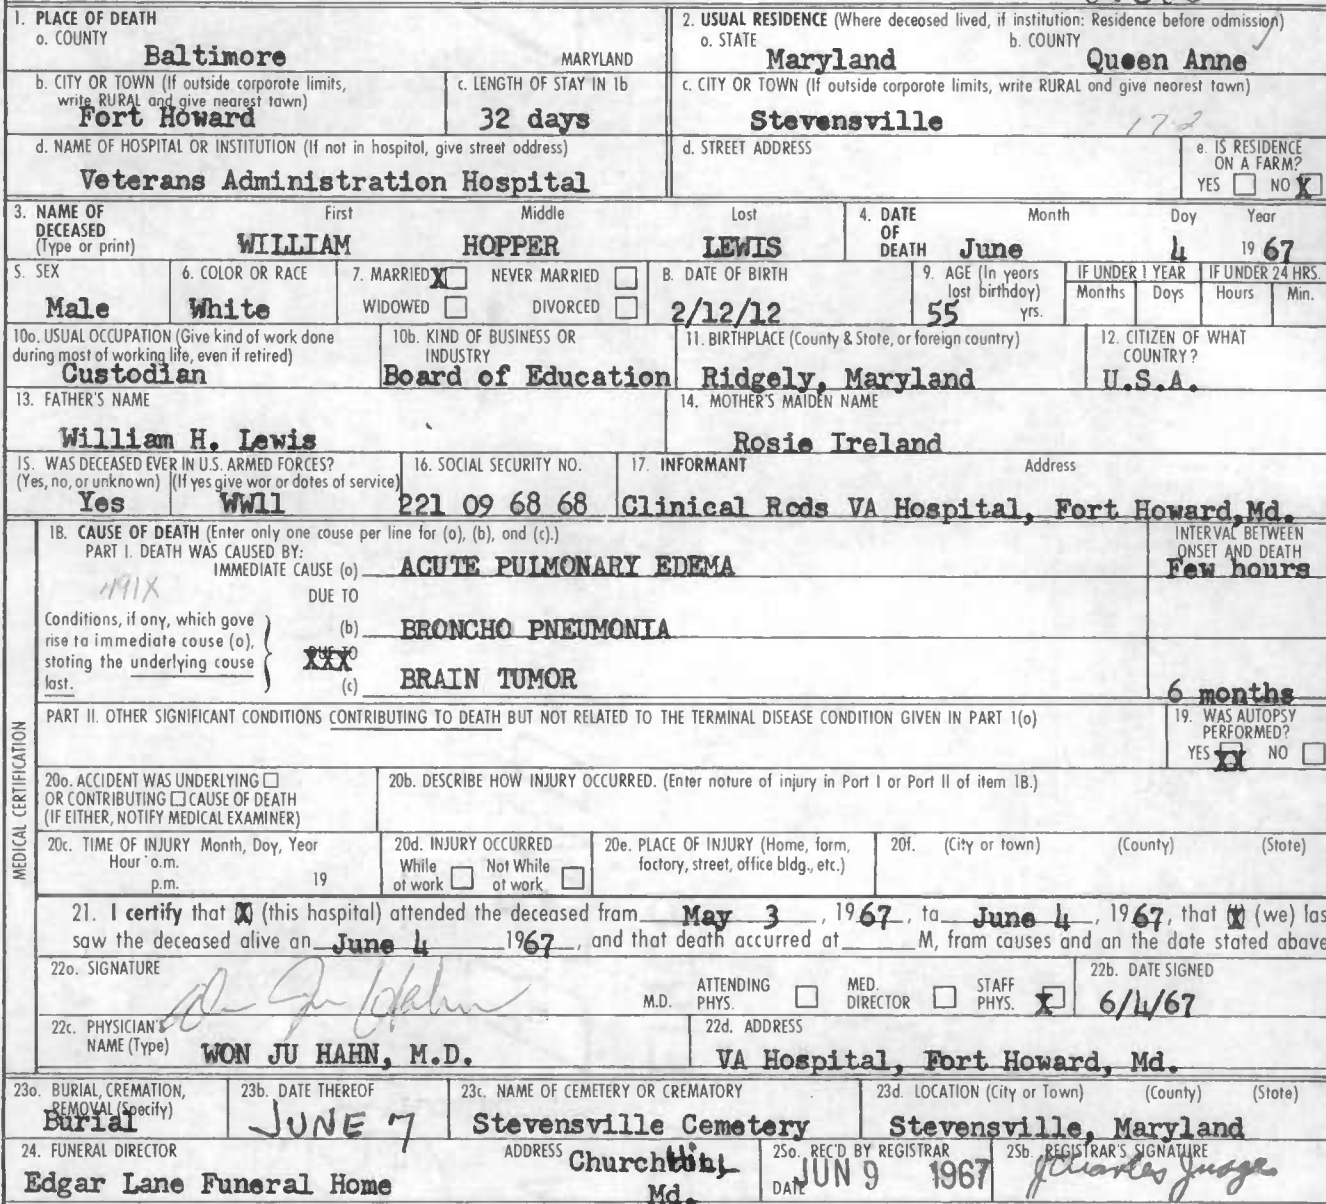 1. PLACE OF DEATH
a. COUNTY
Baltimore MARYLAND
2. USUAL RESIDENCE (Where deceased lived, if institution: Residence before admission)
a. STATE b. COUNTY
Maryland Queen Anne
b. CITY OR TOWN (If outside corporate limits, write RURAL and give nearest town)
Fort Howard
c. LENGTH OF STAY IN 1b
32 days
c. CITY OR TOWN (If outside corporate limits, write RURAL and give nearest town)
Stevensville
17-2
d. NAME OF HOSPITAL OR INSTITUTION (If not in hospital, give street address)
Veterans Administration Hospital
d. STREET ADDRESS
e. IS RESIDENCE ON A FARM?
YES NO X
3. NAME OF DECEASED (Type or print)
First Middle Last
WILLIAM HOPPER LEWIS
4. DATE OF DEATH Month Day Year
June 4 1967
5. SEX
Male
6. COLOR OR RACE
White
7. MARRIED X NEVER MARRIED
WIDOWED DIVORCED
8. DATE OF BIRTH
2/12/12
9. AGE (In years last birthday)
55 yrs.
IF UNDER 1 YEAR IF UNDER 24 HRS.
Months Days Hours Min.
10a. USUAL OCCUPATION (Give kind of work done during most of working life, even if retired)
Custodian
10b. KIND OF BUSINESS OR INDUSTRY
Board of Education
11. BIRTHPLACE (County & State, or foreign country)
Ridgely, Maryland
12. CITIZEN OF WHAT COUNTRY?
U.S.A.
13. FATHER'S NAME
William H. Lewis
14. MOTHER'S MAIDEN NAME
Rosie Ireland
15. WAS DECEASED EVER IN U.S. ARMED FORCES?
(Yes, no, or unknown) (If yes give war or dates of service)
Yes WW11
16. SOCIAL SECURITY NO.
221 09 68 68
17. INFORMANT Address
Clinical Rcds VA Hospital, Fort Howard, Md.
MEDICAL CERTIFICATION
18. CAUSE OF DEATH (Enter only one cause per line for (a), (b), and (c).)
PART I. DEATH WAS CAUSED BY:
IMMEDIATE CAUSE (a) ACUTE PULMONARY EDEMA
INTERVAL BETWEEN ONSET AND DEATH
Few hours
491X
DUE TO
Conditions, if any, which gave rise to immediate cause (a), stating the underlying cause last.
(b) BRONCHO PNEUMONIA
DUE TO XXX
(c) BRAIN TUMOR
6 months
PART II. OTHER SIGNIFICANT CONDITIONS CONTRIBUTING TO DEATH BUT NOT RELATED TO THE TERMINAL DISEASE CONDITION GIVEN IN PART 1(a)
19. WAS AUTOPSY PERFORMED?
YES XX NO
20a. ACCIDENT WAS UNDERLYING
OR CONTRIBUTING CAUSE OF DEATH
(IF EITHER, NOTIFY MEDICAL EXAMINER)
20b. DESCRIBE HOW INJURY OCCURRED. (Enter nature of injury in Part I or Part II of item 18.)
20c. TIME OF INJURY Month, Day, Year
Hour a.m.
p.m. 19
20d. INJURY OCCURRED
While at work Not While at work
20e. PLACE OF INJURY (Home, farm, factory, street, office bldg., etc.)
20f. (City or town) (County) (State)
21. I certify that X (this hospital) attended the deceased from May 3, 1967, to June 4, 1967, that X (we) las
saw the deceased alive on June 4 1967, and that death occurred at M, from causes and on the date stated above
22a. SIGNATURE
Won Ju Hahn
M.D. ATTENDING PHYS. MED. DIRECTOR STAFF PHYS. X
22b. DATE SIGNED
6/4/67
22c. PHYSICIAN'S NAME (Type)
WON JU HAHN, M.D.
22d. ADDRESS
VA Hospital, Fort Howard, Md.
23a. BURIAL, CREMATION, REMOVAL (Specify)
Burial
23b. DATE THEREOF
JUNE 7
23c. NAME OF CEMETERY OR CREMATORY
Stevensville Cemetery
23d. LOCATION (City or Town) (County) (State)
Stevensville, Maryland
24. FUNERAL DIRECTOR
Edgar Lane Funeral Home
ADDRESS
Md.
25a. REC'D BY REGISTRAR
DATE JUN 9 1967
25b. REGISTRAR'S SIGNATURE
J Charles Judge